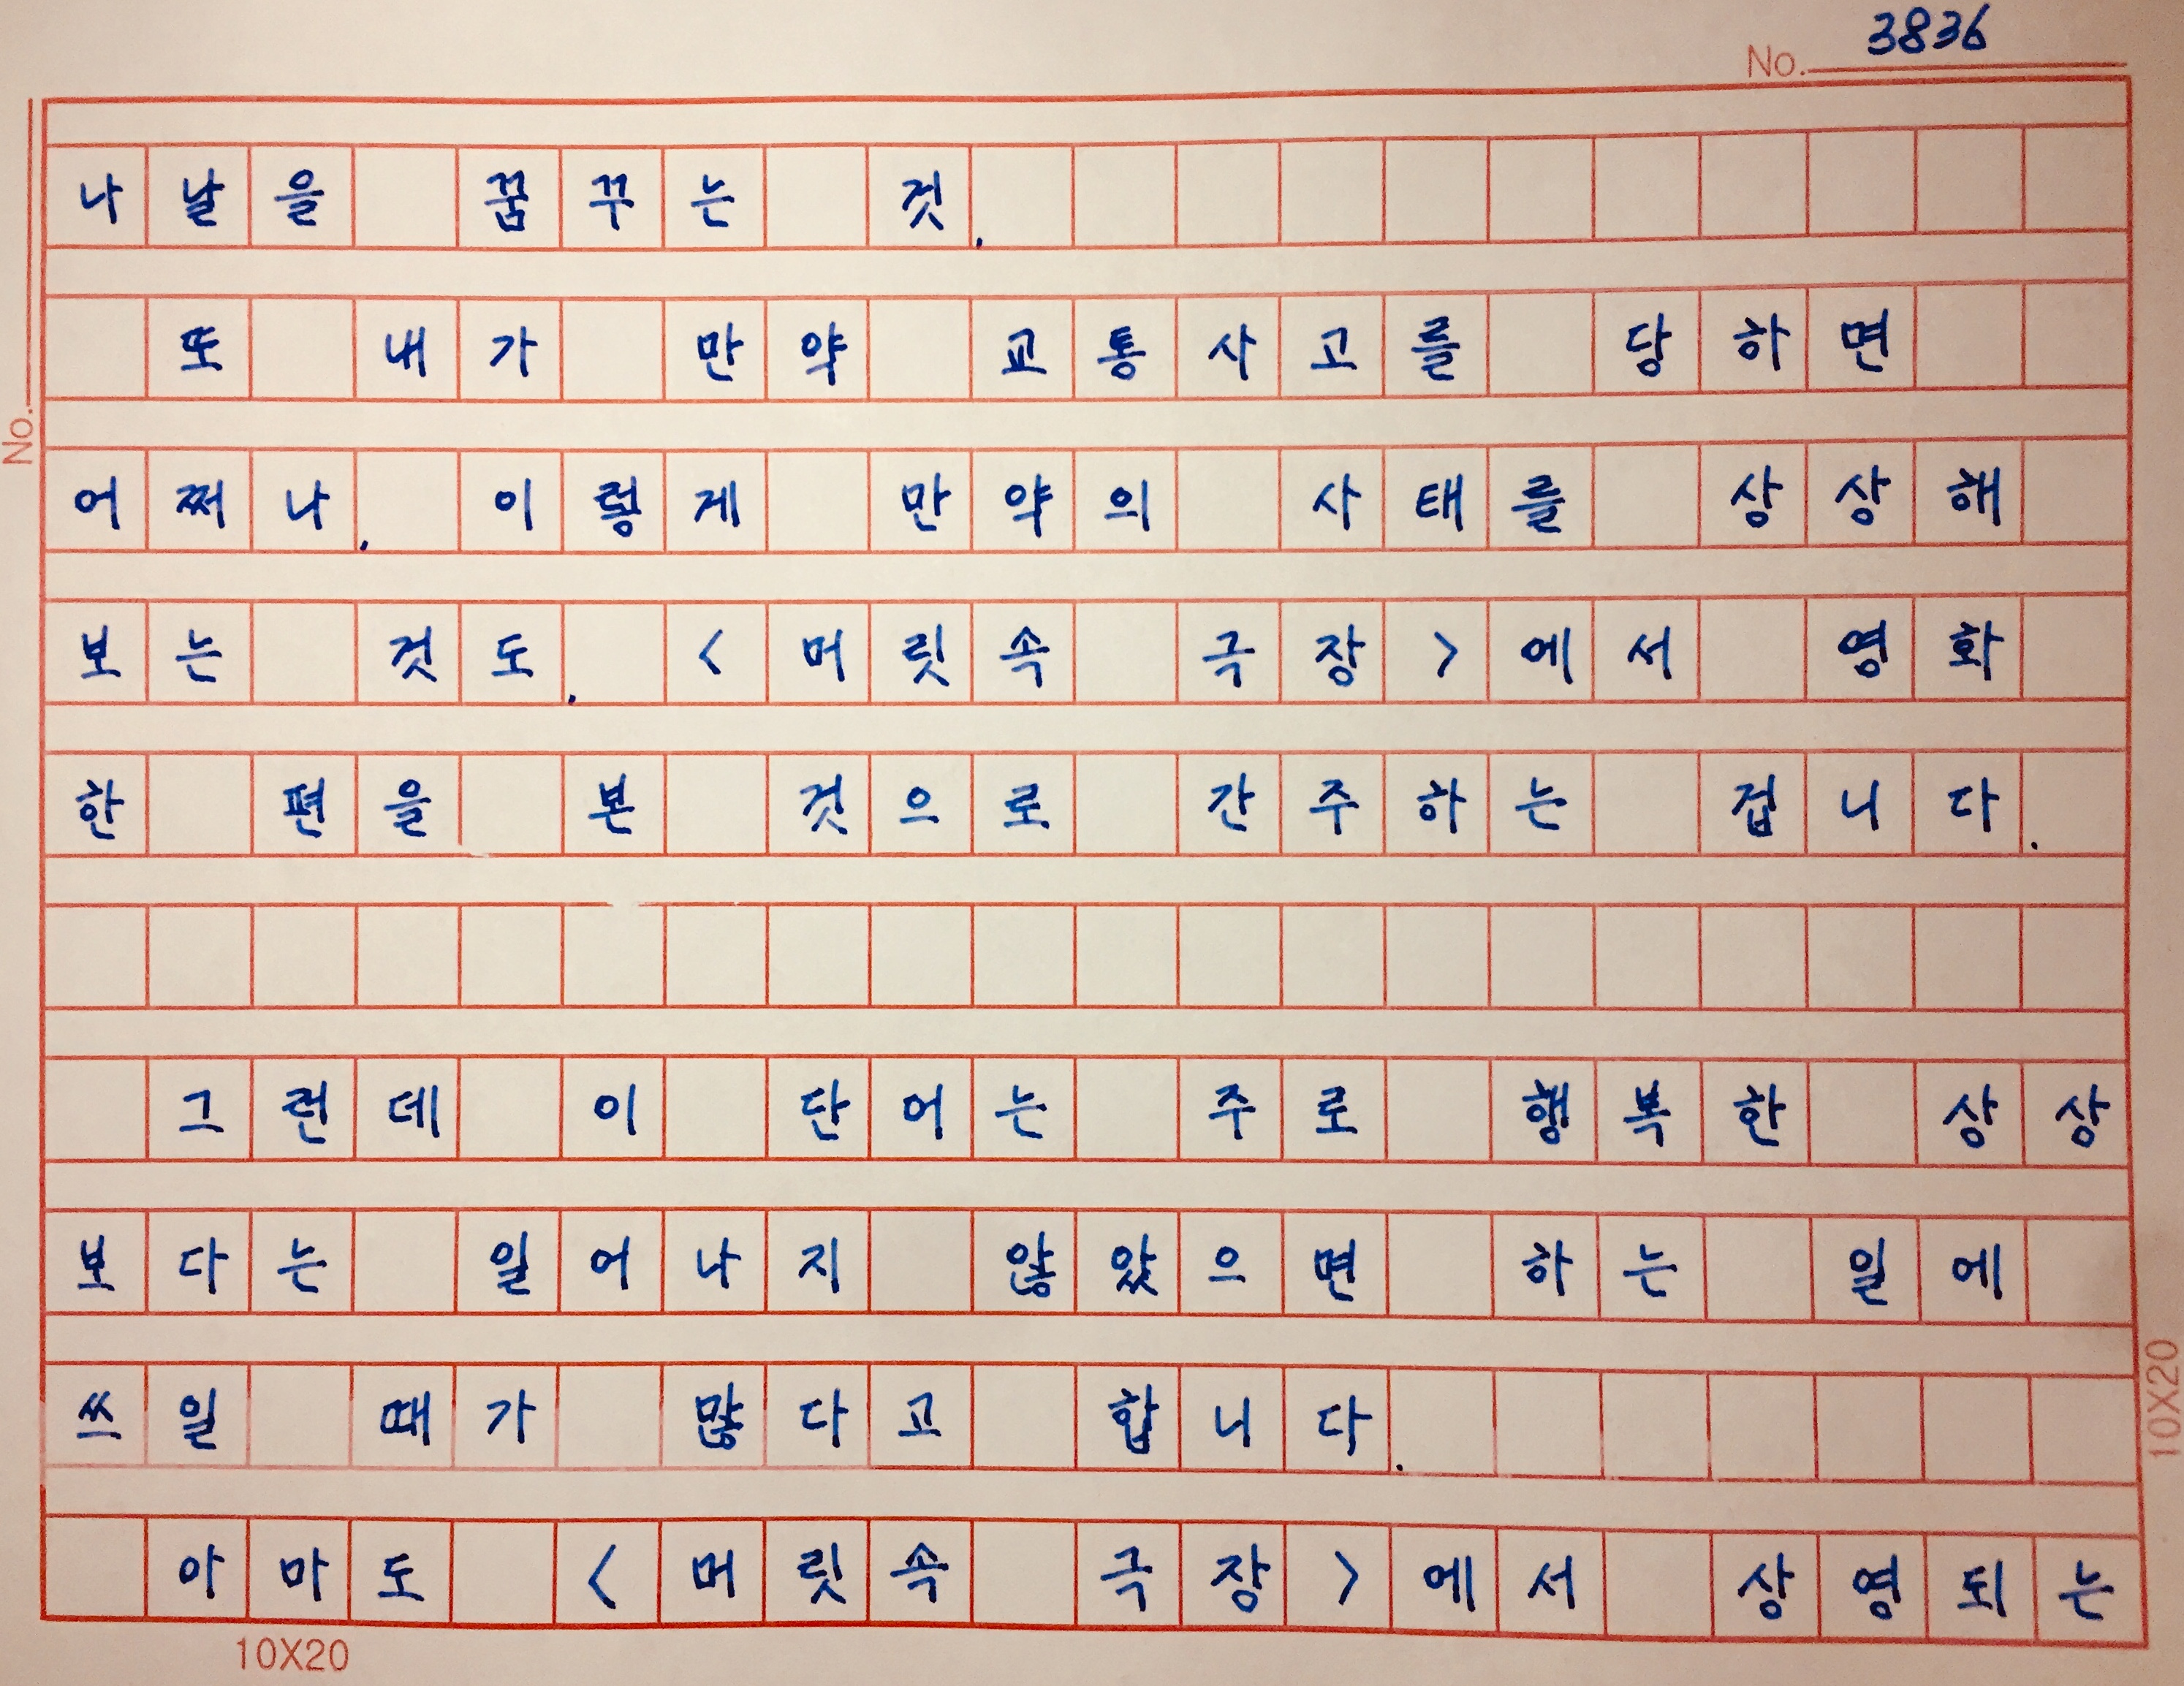 3836
No.
나날을 꿈꾸는 것.
또 내가 만약 교통사고를 당하면
어쩌나. 이렇게 만약의 사태를 상상해
보는 것도. <머릿속 극장>에서 영화
한 편을 본 것으로 간주하는 겁니다.
그런데 이 단어는 주로 행복한 상상
보다는 일어나지 않았으면 하는 일에
쓰일 때가 많다고 합니다.
아마도 <머릿속 극장>에서 상영되는
10X20
No.
10X20